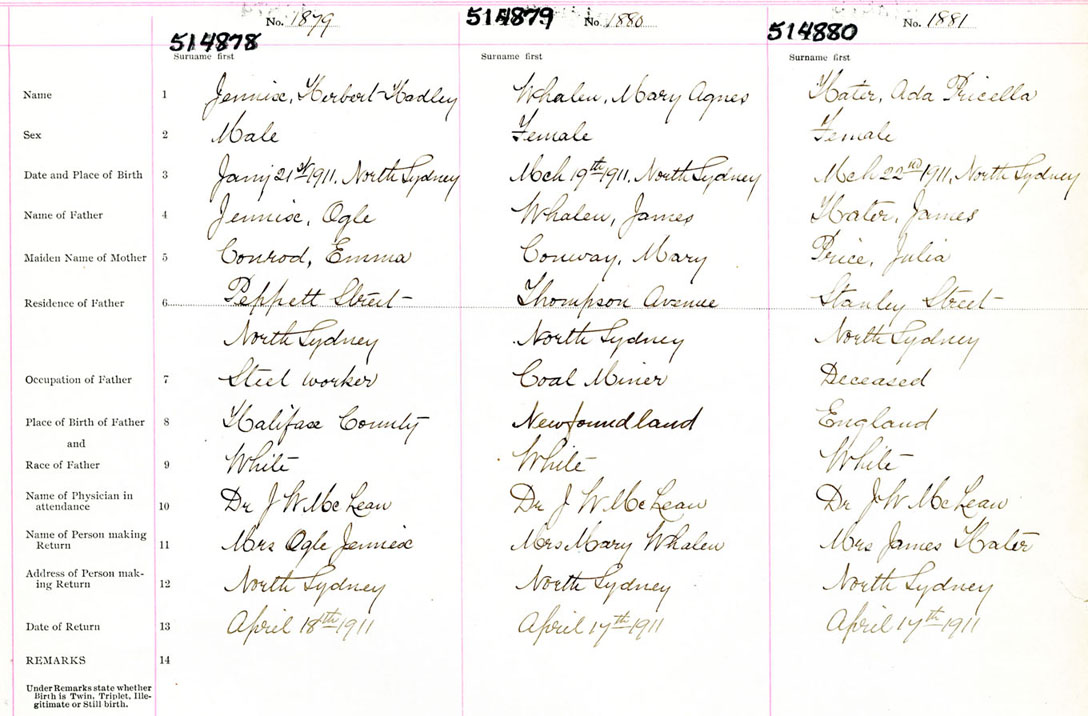 No. 1879 No 1880 No. 1881
514878 514879 514880
Surname first Surname first Surname first
Name 1 Jennix, Herbert Hadley Whalen, Mary Agnes Hater, Ada Pricella
Sex 2 Male Female Female
Date and Place of Birth 3 Jany 21st 1911, North Sydney Mch 19th 1911, North Sydney Mch 22nd 1911, North Sydney
Name of Father 4 Jennix, Ogle Whalen, James Hater, James
Maiden Name of Mother 5 Conrod, Emma Conway, Mary Price, Julia
Residence of Father 6 Peppett Street Thompson Avenue Stanley Street
North Sydney North Sydney North Sydney
Occupation of Father 7 Steel worker Coal Miner Deceased
Place of Birth of Father 8 Halifax County Newfoundland England
and
Race of Father 9 White White White
Name of Physician in
attendance 10 Dr J W McLean Dr J W McLean Dr J W McLean
Name of Person making
Return 11 Mrs Ogle Jennix Mrs Mary Whalen Mrs James Hater
Address of Person mak-
ing Return 12 North Sydney North Sydney North Sydney
Date of Return 13 April 18th 1911 April 17th 1911 April 17th 1911
REMARKS 14
Under Remarks state whether
Birth is Twin, Triplet, Ille-
gitimate or Still birth.